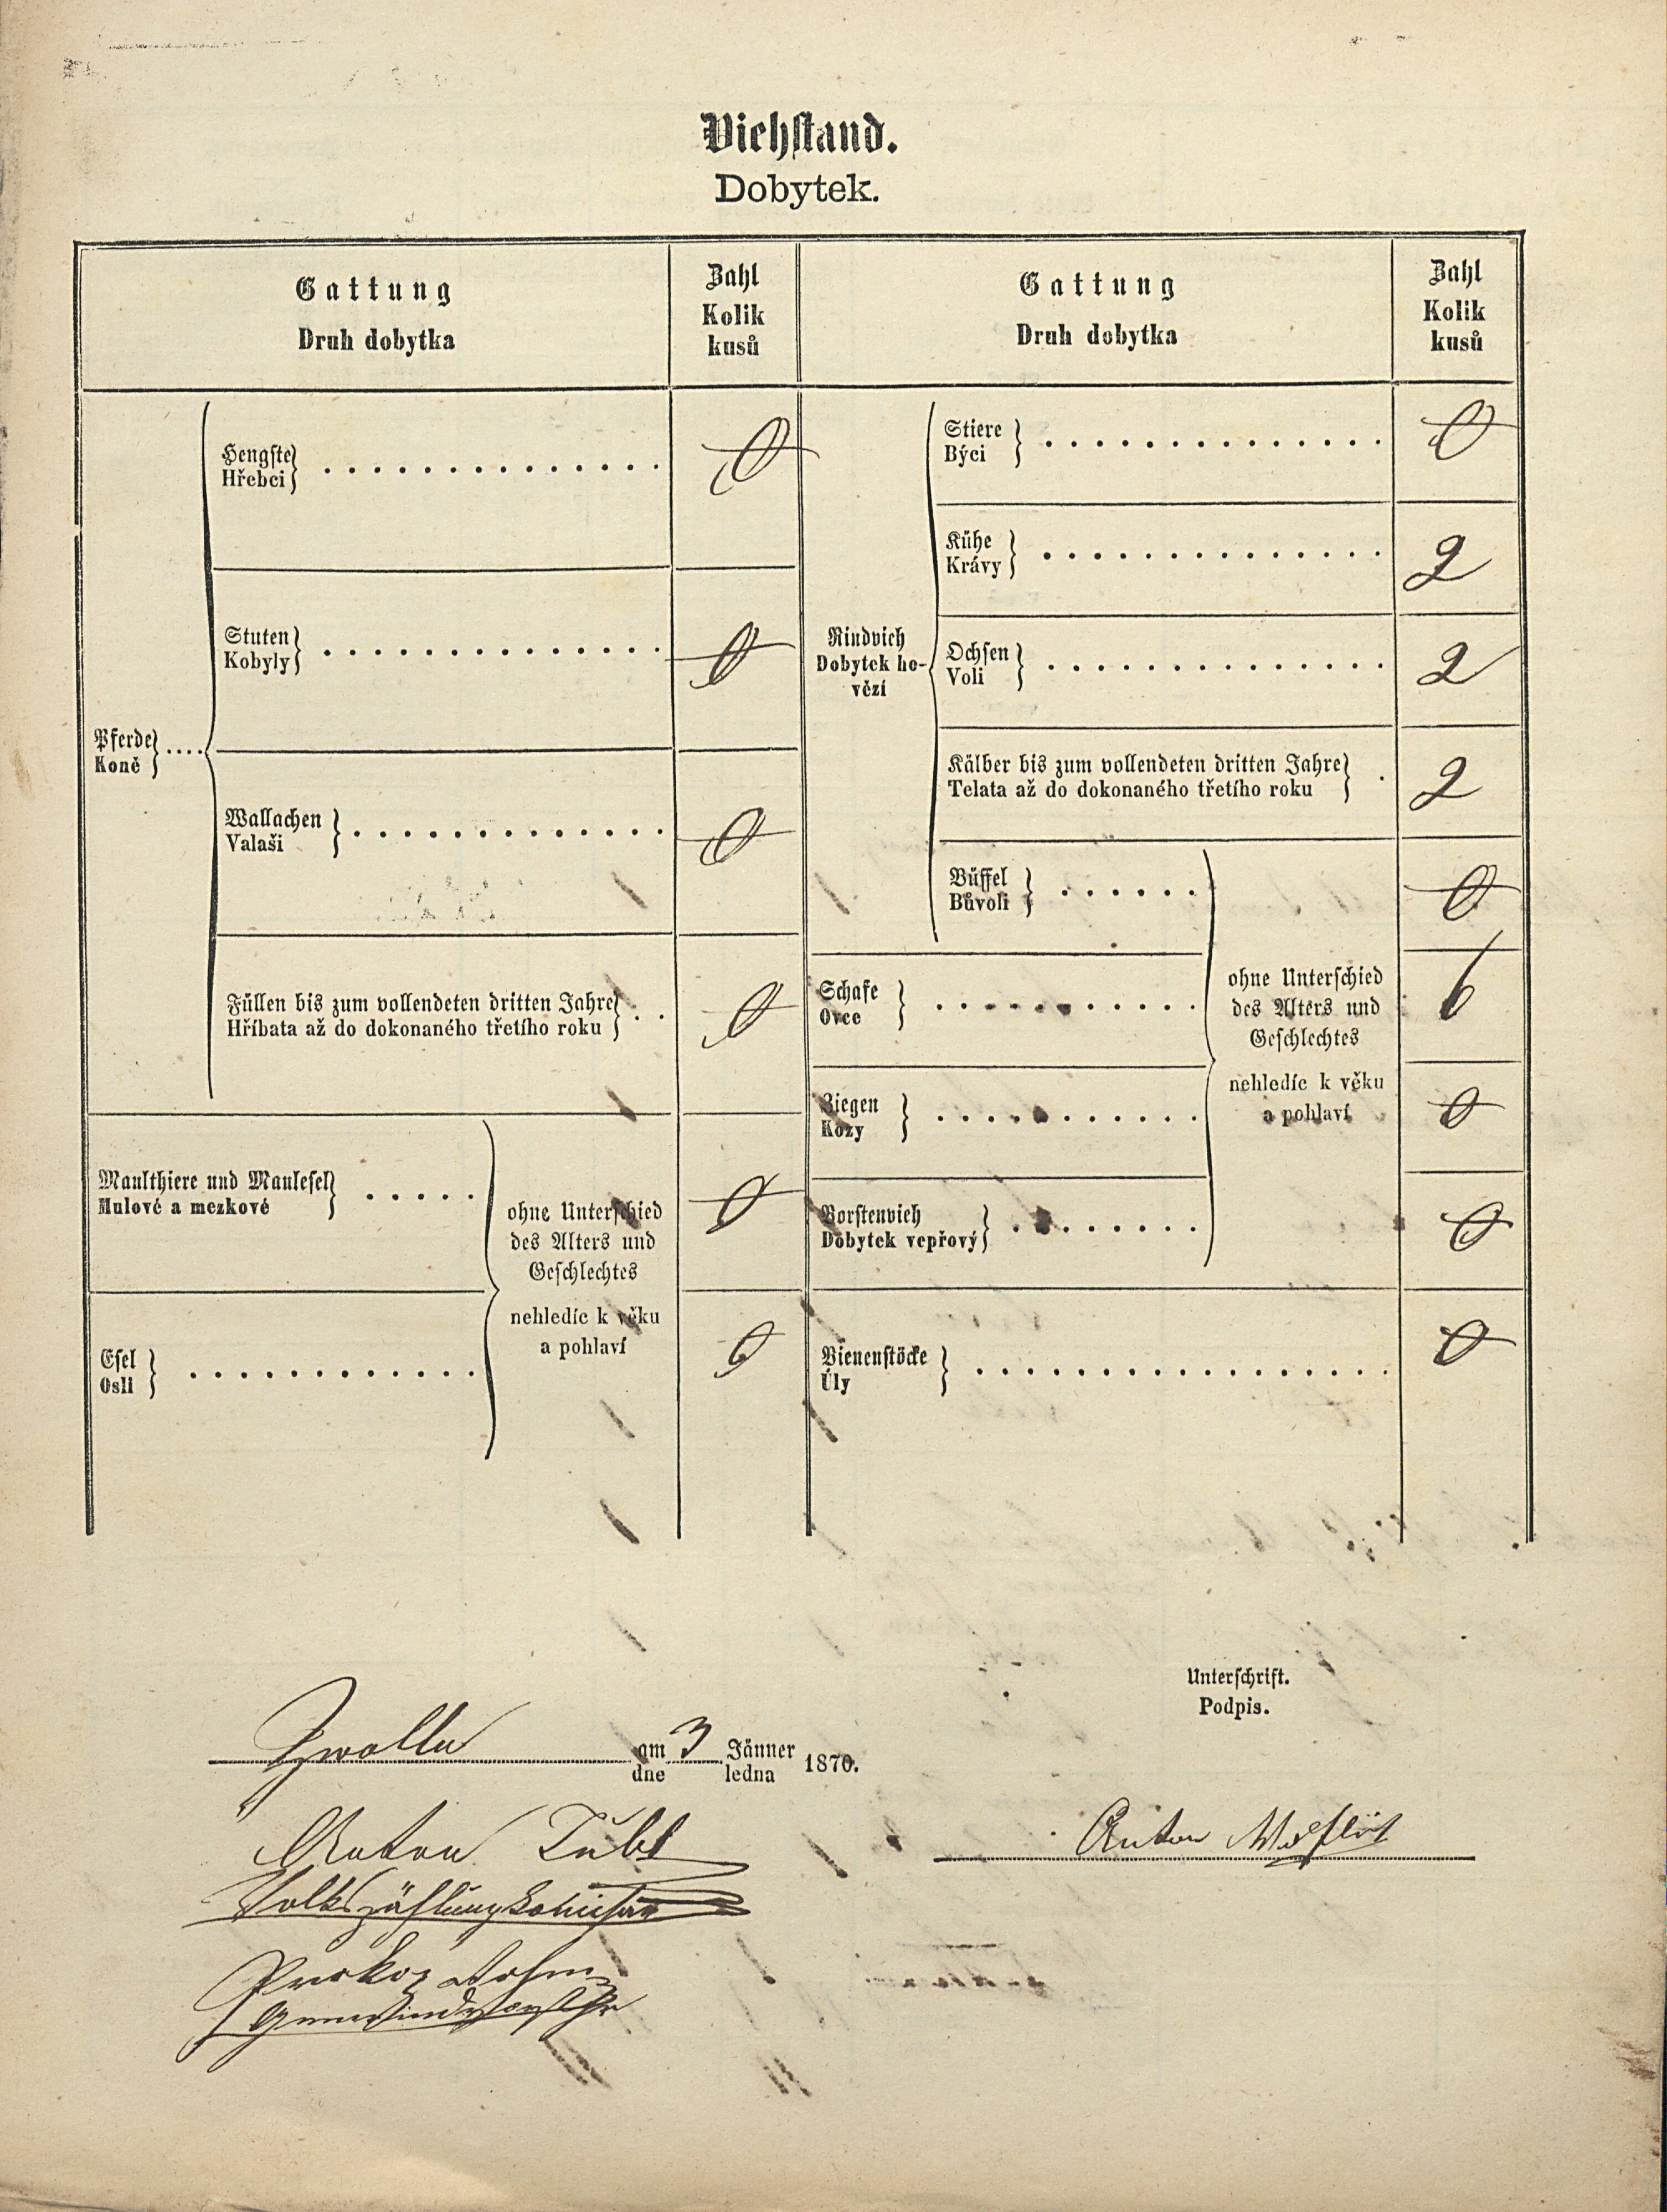 Viehstand.
Dobytek.
Gattung
Druh dobytka
Zahl
Kolik
kusů
Gattung
Druh dobytka
Zahl
Kolik
kusů
Pferde
Koně
Hengste
Hřebci
0
Stuten
Kobyly
0
Wallachen
Valaši
0
Füllen bis zum vollendeten dritten Jahre
Hříbata až do dokonaného třetího roku
0
Maulthiere und Maulesel
Mulové a mezkové
0
Esel
Osli
0
ohne Unterschied
des Alters und
Geschlechtes
nehledíc k věku
a pohlaví
Rindvieh
Dobytek ho-
vězí
Stiere
Býci
0
Kühe
Krávy
2
Ochsen
Voli
2
Kälber bis zum vollendeten dritten Jahre
Telata až do dokonaného třetího roku
2
Büffel
Bůvoli
0
Schafe
Ovce
6
Ziegen
Kozy
0
Borstenvieh
Dobytek vepřový
0
ohne Unterschied
des Alters und
Geschlechtes
nehledíc k věku
a pohlaví
Bienenstöcke
Úly
0
Unterschrift.
Podpis.
am 3 Jänner 1870.
dne ledna
Anton
Anton
Volkszählungskomisär
Prokop
Gemeindevorsteher